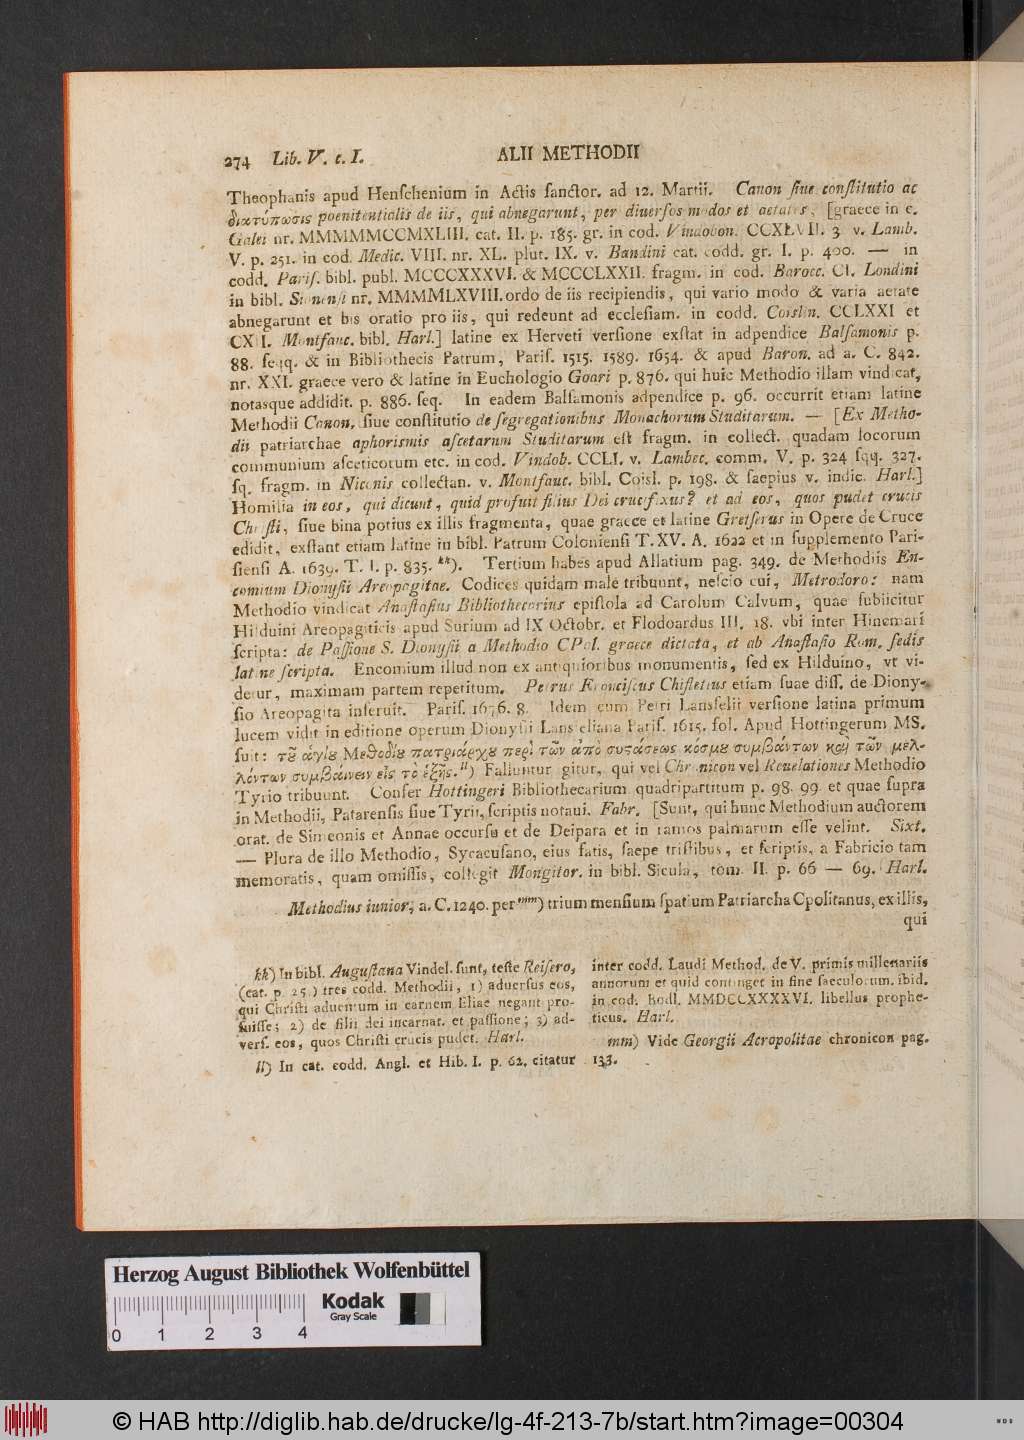 274 Lib. V. c. I. ALII METHODII
Theophanis apud Henſchenium in Actis ſanctor. ad 12. Martii. Canon ſiue conſtitutio ac
διατύπωσις poenitentialis de iis, qui abnegarunt, per diuerſos modos et aetates, [graece in c.
Galei nr. MMMMMCCMXLIII. cat. II. p. 185. gr. in cod. Vindobon. CCXLVII. 3 v. Lamb.
V. p. 251. in cod. Medic. VIII. nr. XL. plut. IX. v. Bandini cat. codd. gr. I. p. 400. — in
codd. Pariſ. bibl. publ. MCCCXXXVI. & MCCCLXXII. fragm. in cod. Barocc. CI. Londini
in bibl. Sionenſi nr. MMMMLXVIII. ordo de iis recipiendis, qui vario modo & varia aetate
abnegarunt et bis oratio pro iis, qui redeunt ad eccleſiam. in codd. Coislin. CCLXXI et
CXII. Montfauc. bibl. Harl.] latine ex Herveti verſione exſtat in adpendice Balſamonis p.
88. ſeqq. & in Bibliothecis Patrum, Pariſ. 1515. 1589. 1654. & apud Baron. ad a. C. 842.
nr. XXI. graece vero & latine in Euchologio Goari p. 876. qui huic Methodio illam vindicat,
notasque addidit. p. 886. ſeq. In eadem Balſamonis adpendice p. 96. occurrit etiam latine
Methodii Canon, ſiue conſtitutio de ſegregationibus Monachorum Studitarum. — [Ex Metho-
dii patriarchae aphorismis aſcetarum Studitarum eſt fragm. in collect. quadam locorum
communium aſceticorum etc. in cod. Vindob. CCLI. v. Lambec. comm. V. p. 324 ſqq. 327.
ſq. fragm. in Niconis collectan. v. Montfauc. bibl. Coisl. p. 198. & ſaepius v. indic. Harl.]
Homilia in eos, qui dicunt, quid profuit filius Dei crucifixus? et ad eos, quos pudet crucis
Chriſti, ſiue bina potius ex illis fragmenta, quae graece et latine Gretſerus in Opere de Cruce
edidit, exſtant etiam latine in bibl. Patrum Colonienſi T. XV. A. 1622 et in ſupplemento Pari-
ſienſi A. 1639. T. I. p. 835. kk). Tertium habes apud Allatium pag. 349. de Methodiis En-
comium Dionyſii Areopagitae. Codices quidam male tribuunt, neſcio cui, Metrodoro: nam
Methodio vindicat Anaſtaſius Bibliothecarius epiſtola ad Carolum Calvum, quae ſubiicitur
Hilduini Areopagiticis apud Surium ad IX Octobr. et Flodoardus III. 18. vbi inter Hincmari
ſcripta: de Paſſione S. Dionyſii a Methodio CPol. graece dictata, et ab Anaſtaſio Rom. ſedis
latine ſcripta. Encomium illud non ex antiquioribus monumentis, ſed ex Hilduino, vt vi-
detur, maximam partem repetitum. Petrus Franciſcus Chifletius etiam ſuae diſſ. de Diony-
ſio Areopagita inſeruit. Pariſ. 1676. 8. Idem cum Petri Lansſelii verſione latina primum
lucem vidit in editione operum Dionyſii Lansſeliana Pariſ. 1615. fol. Apud Hottingerum MS.
fuit: τȣ̃ ἁγίȣ Μεθοδίȣ πατριάρχȣ περὶ τῶν ἀπὸ συςάσεως κόσμȣ συμβάντων καὶ τῶν μελ-
λόντων συμβαίνειν εἰς τὸ ἑξῆς. ll) Falluntur igitur, qui vel Chronicon vel Reuelationes Methodio
Tyrio tribuunt. Confer Hottingeri Bibliothecarium quadripartitum p. 98. 99 et quae ſupra
in Methodii, Patarenſis ſiue Tyrii, ſcriptis notaui. Fabr. [Sunt, qui hunc Methodium auctorem
orat. de Simeonis et Annae occurſu et de Deipara et in ramos palmarum eſſe velint. Sixt.
— Plura de illo Methodio, Syracuſano, eius fatis, ſaepe triſtibus, et ſcriptis, a Fabricio tam
memoratis, quam omiſſis, collegit Mongitor. in bibl. Sicula, tom. II. p. 66 — 69. Harl.
Methodius iunior, a. C. 1240. per mm) trium menſium ſpatium Patriarcha Cpolitanus, ex illis,
qui
kk) In bibl. Auguſtana Vindel. ſunt, teſte Reiſero,
(cat. p. 25.) tres codd. Methodii, 1) aduerſus eos,
qui Chriſti aduentum in carnem Eliae negant pro-
fuiſſe; 2) de filii dei incarnat. et paſſione; 3) ad-
verſ. eos, quos Chriſti crucis pudet. Harl.
ll) In cat. codd. Angl. et Hib. I. p. 62. citatur
inter codd. Laudi Method. de V. primis millenariis
annorum et quid continget in fine ſaeculorum. ibid.
in cod. Bodl. MMDCCXXXXVI. libellus prophe-
ticus. Harl.
mm) Vide Georgii Acropolitae chronicon pag.
133.
Herzog August Bibliothek Wolfenbüttel
0 1 2 3 4
Kodak
Gray Scale
© HAB http://diglib.hab.de/drucke/lg-4f-213-7b/start.htm?image=00304